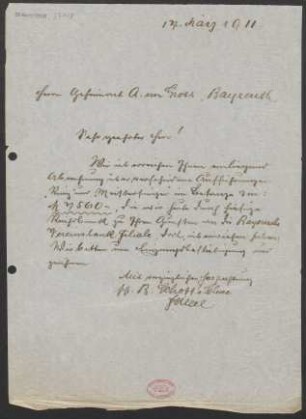 17. März 1911
Herrn Geheimrat A. von Gross, Bayreuth
Sehr geehrter Herr!
Wir überreichen Ihnen einliegend
Abrechnung über verschiedene Aufführungen
Ring und Meistersinger im Betrage von:
M 7560.- die wir heute durch hiesige
Reichsbank zu Ihren Gunsten an die Bayerische
Vereinsbank Filiale dort, überwiesen haben.
Wir bitten um Empfangsbestätigung und
zeichnen
Mit vorzüglicher Hochachtung
B. Schott's Söhne